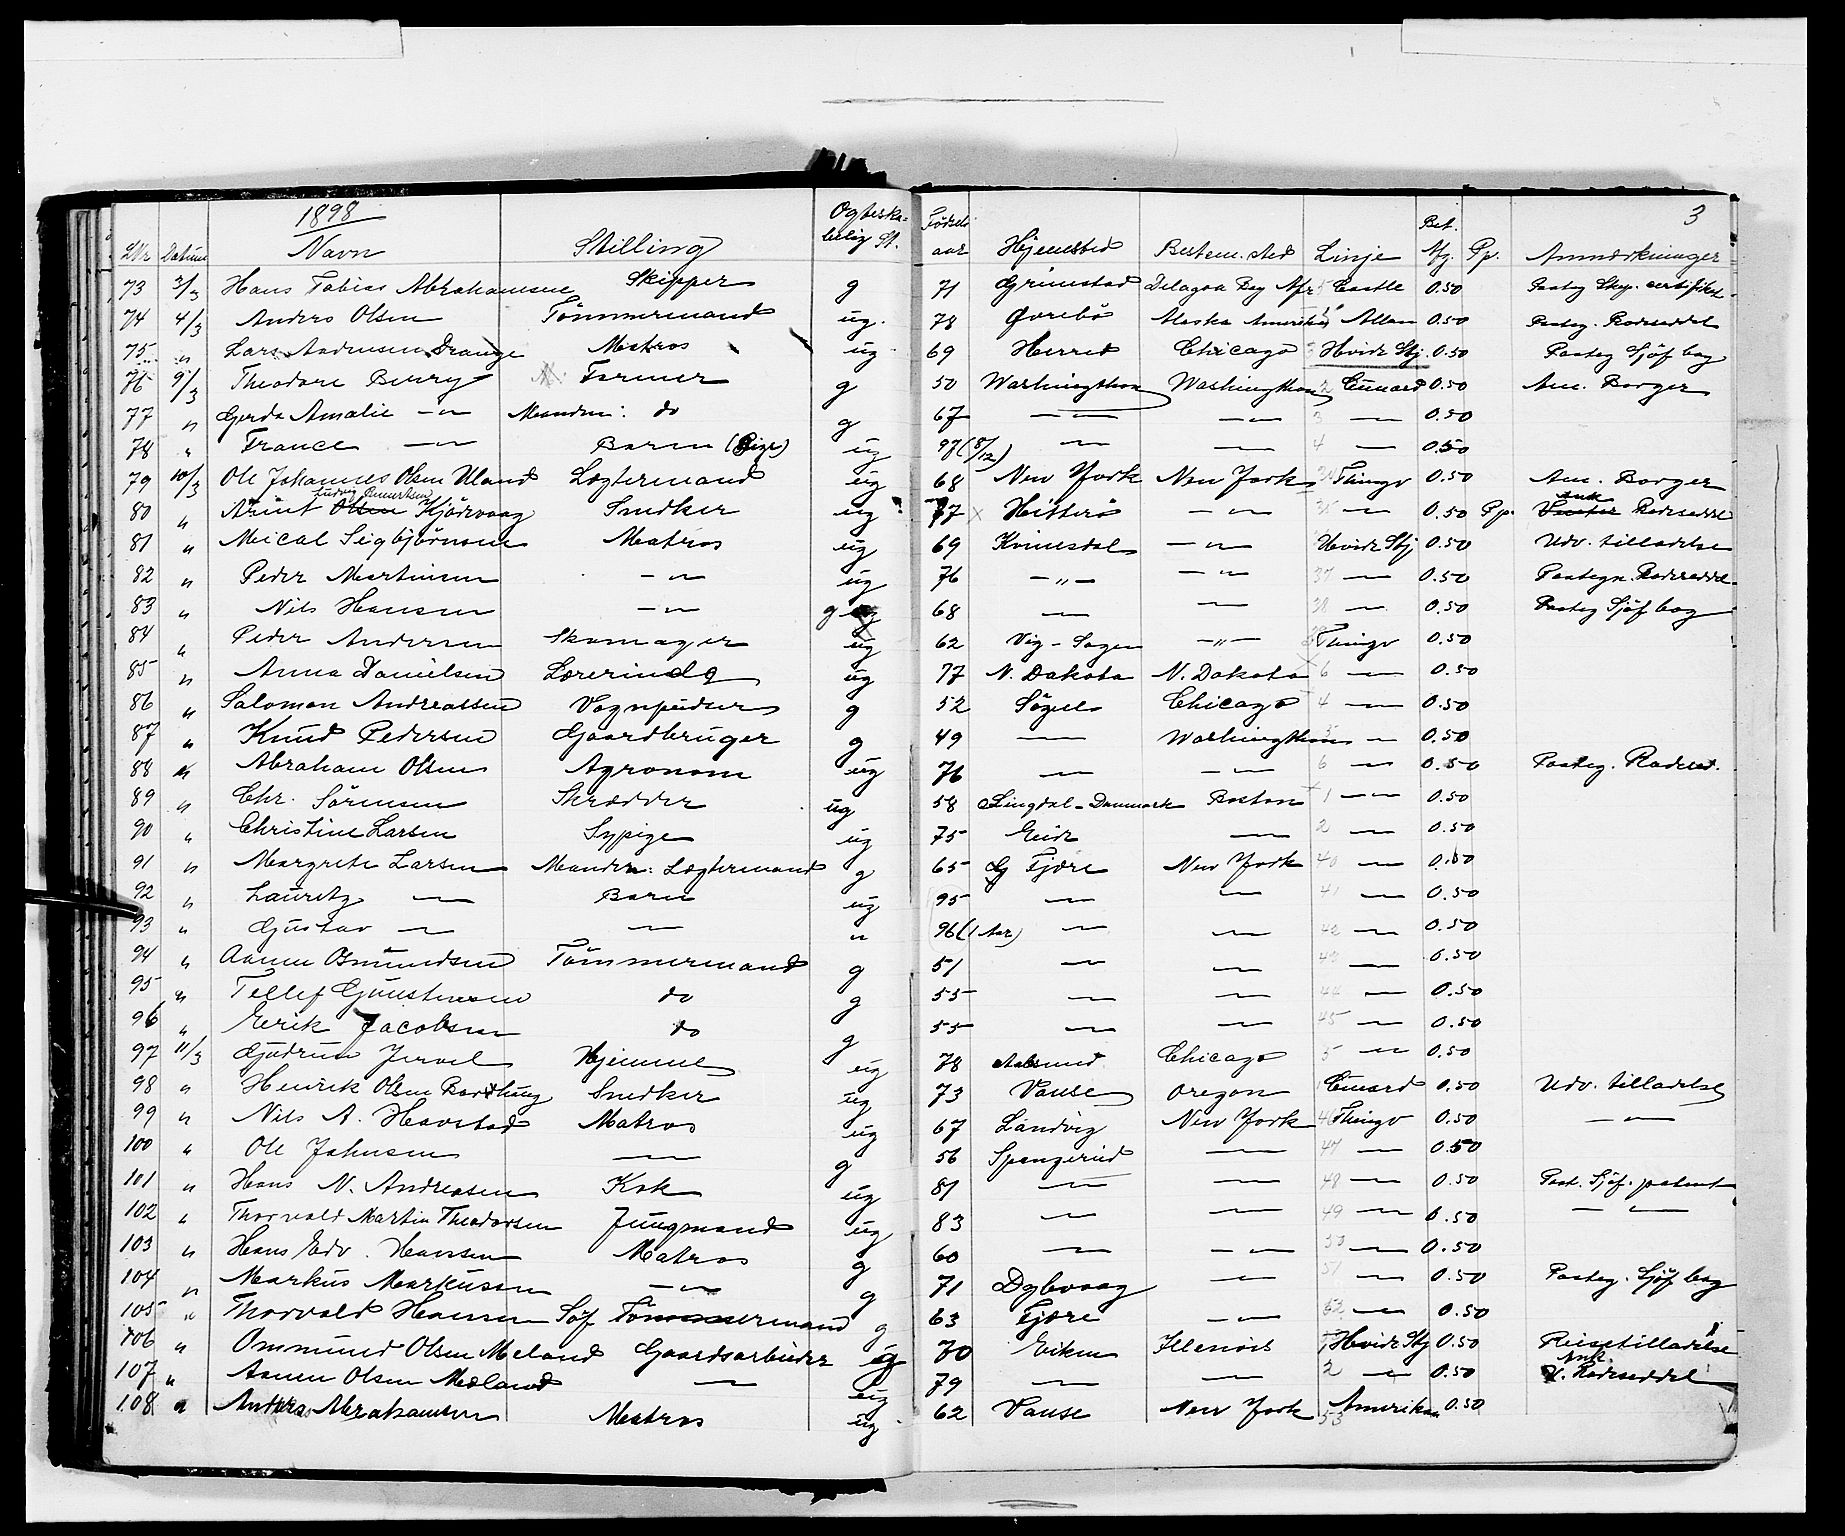 1898 3
Nr Datum Navn Stilling Ogteska= belig St. Födsels aar Hjemsted Bestem. sted Linje Bet. Afg. Pp. Anmærkninger
73 3/3 Hans Tobias Abrahamsen Skipper g 71 Grimstad Delagoa Bay Afr Castle 0.50 Paateg Skp. certifikat
74 4/3 Anders Olsen Tömmermand ug. 78 Øvrebö Alaska Amerika Allan 0.50 Paateg. Rodeseddel
75 " Lars Andersen Drange Matros ug 69 Herred Chicago Hvide Stj. 0.50 Paateg Sjöf bog
76 9/3 Theodore Berry Farmer g 50 Washington Washington 2 Cunard 0.50 Am. Borger
77 " Gerda Amalie —"— Manden: do g 67 —"— —"— 3 —"— 0.50
78 " France —"— Barn (Pige) ug 97 (8/12) —"— —"— 4 —"— 0.50
79 10/3 Ole Johannes Olsen Uland Lægtermand ug 68 New York New York 34 Thingv 0.50 Am. Borger
80 " Arent Olsen Ludvig Kjörvaag Snedker ug 77 Hitterö —"— 35 —"— 0.50 Pp. Ank Rodeseddel
81 " Mical Seigbjörnsen Matros ug 69 Kvinesdal —"— Hvide Stj 0.50 Udv. tilladelse
82 " Peder Martinsen —"— ug 76 —"— —"— 37 —"— 0.50 Paategn. Rodeseddel
83 " Nils Hansen —"— g 68 —"— —"— 38 —"— 0.50 Paateg Sjöf bog
84 " Peder Andersen Skomager ug 62 Vig-Sogn —"— Thingv 0.50
85 " Anna Danielsen Lærerinde ug 77 N. Dakota N. Dakota 6 —"— 0.50
86 " Salomon Andreassen Vognpudser g 52 Sögne Chicago 4 —"— 0.50
87 " Knud Pedersen Gaardbruger g 49 —"— Washington —"— 0.50
88 " Abraham Olsen Agronom ug 76 —"— —"— 6 —"— 0.50 Paateg. Rodesed.
89 " Chr. Sörensen Skrædder ug 58 Lingdal-Danmark Boston 1 —"— 0.50
90 " Christine Larsen Sypige ug 75 Eide —"— 2 —"— 0.50
91 " Margrete Larsen Manden: Lægtermand g 65 Fjære New York 40 —"— 0.50
92 " Lauritz —"— Barn ug 95 —"— —"— 41 —"— 0.50
93 " Gustav —"— —"— " 96 (1 Aar) —"— —"— 42 —"— 0.50
94 " Aanen Osmundsen Tömmermand g 51 —"— —"— 43 —"— 0.50
95 " Tellef Gunstensen do g 55 —"— —"— 44 —"— 0.50
96 " Eerik Jacobsen do g 55 —"— —"— 45 —"— 0.50
97 11/3 Gudrun Jervel Hjemme ug 78 Aalesund Chicago 5 —"— 0.50
98 " Henrik Olsen Snedker ug 73 Vanse Oregon Cunard 0.50 Udv. tilladelse
99 " Nils A. Havstad Matros ug 67 Landvig New York 46 Thingv 0.50 —"—
100 " Ole Johnsen —"— g 56 Spangereid —"— 47 —"— 0.50
101 " Hans N. Andreasen Kok ug 81 —"— —"— 48 —"— 0.50 Paat. Sjöf. patent
102 " Thorvald Martin Theodorsen Jungmand ug 83 —"— —"— 49 —"— 0.50 —"—
103 " Hans Edv. Hanssen Matros g 60 —"— —"— 50 —"— 0.50
104 " Markus Markussen —"— g 71 Dybvaag —"— 51 —"— 0.50 Paateg. Sjöf bog
105 " Thorvald Hansen Söf Tömmermand g 63 Fjære —"— 52 —"— 0.50
106 " Ommund Olsen Meland Gaardsarbeider ug 70 Eiken Illenois Hvide Stj 0.50 Reisetilladelse
107 " Aanen Olsen Medland —"— ug 79 —"— —"— 2 —"— 0.50 Ank. Rodeseddel
108 " Anders Abrahamsen Matros ug 62 Vanse New York 53 Amerikan 0.50